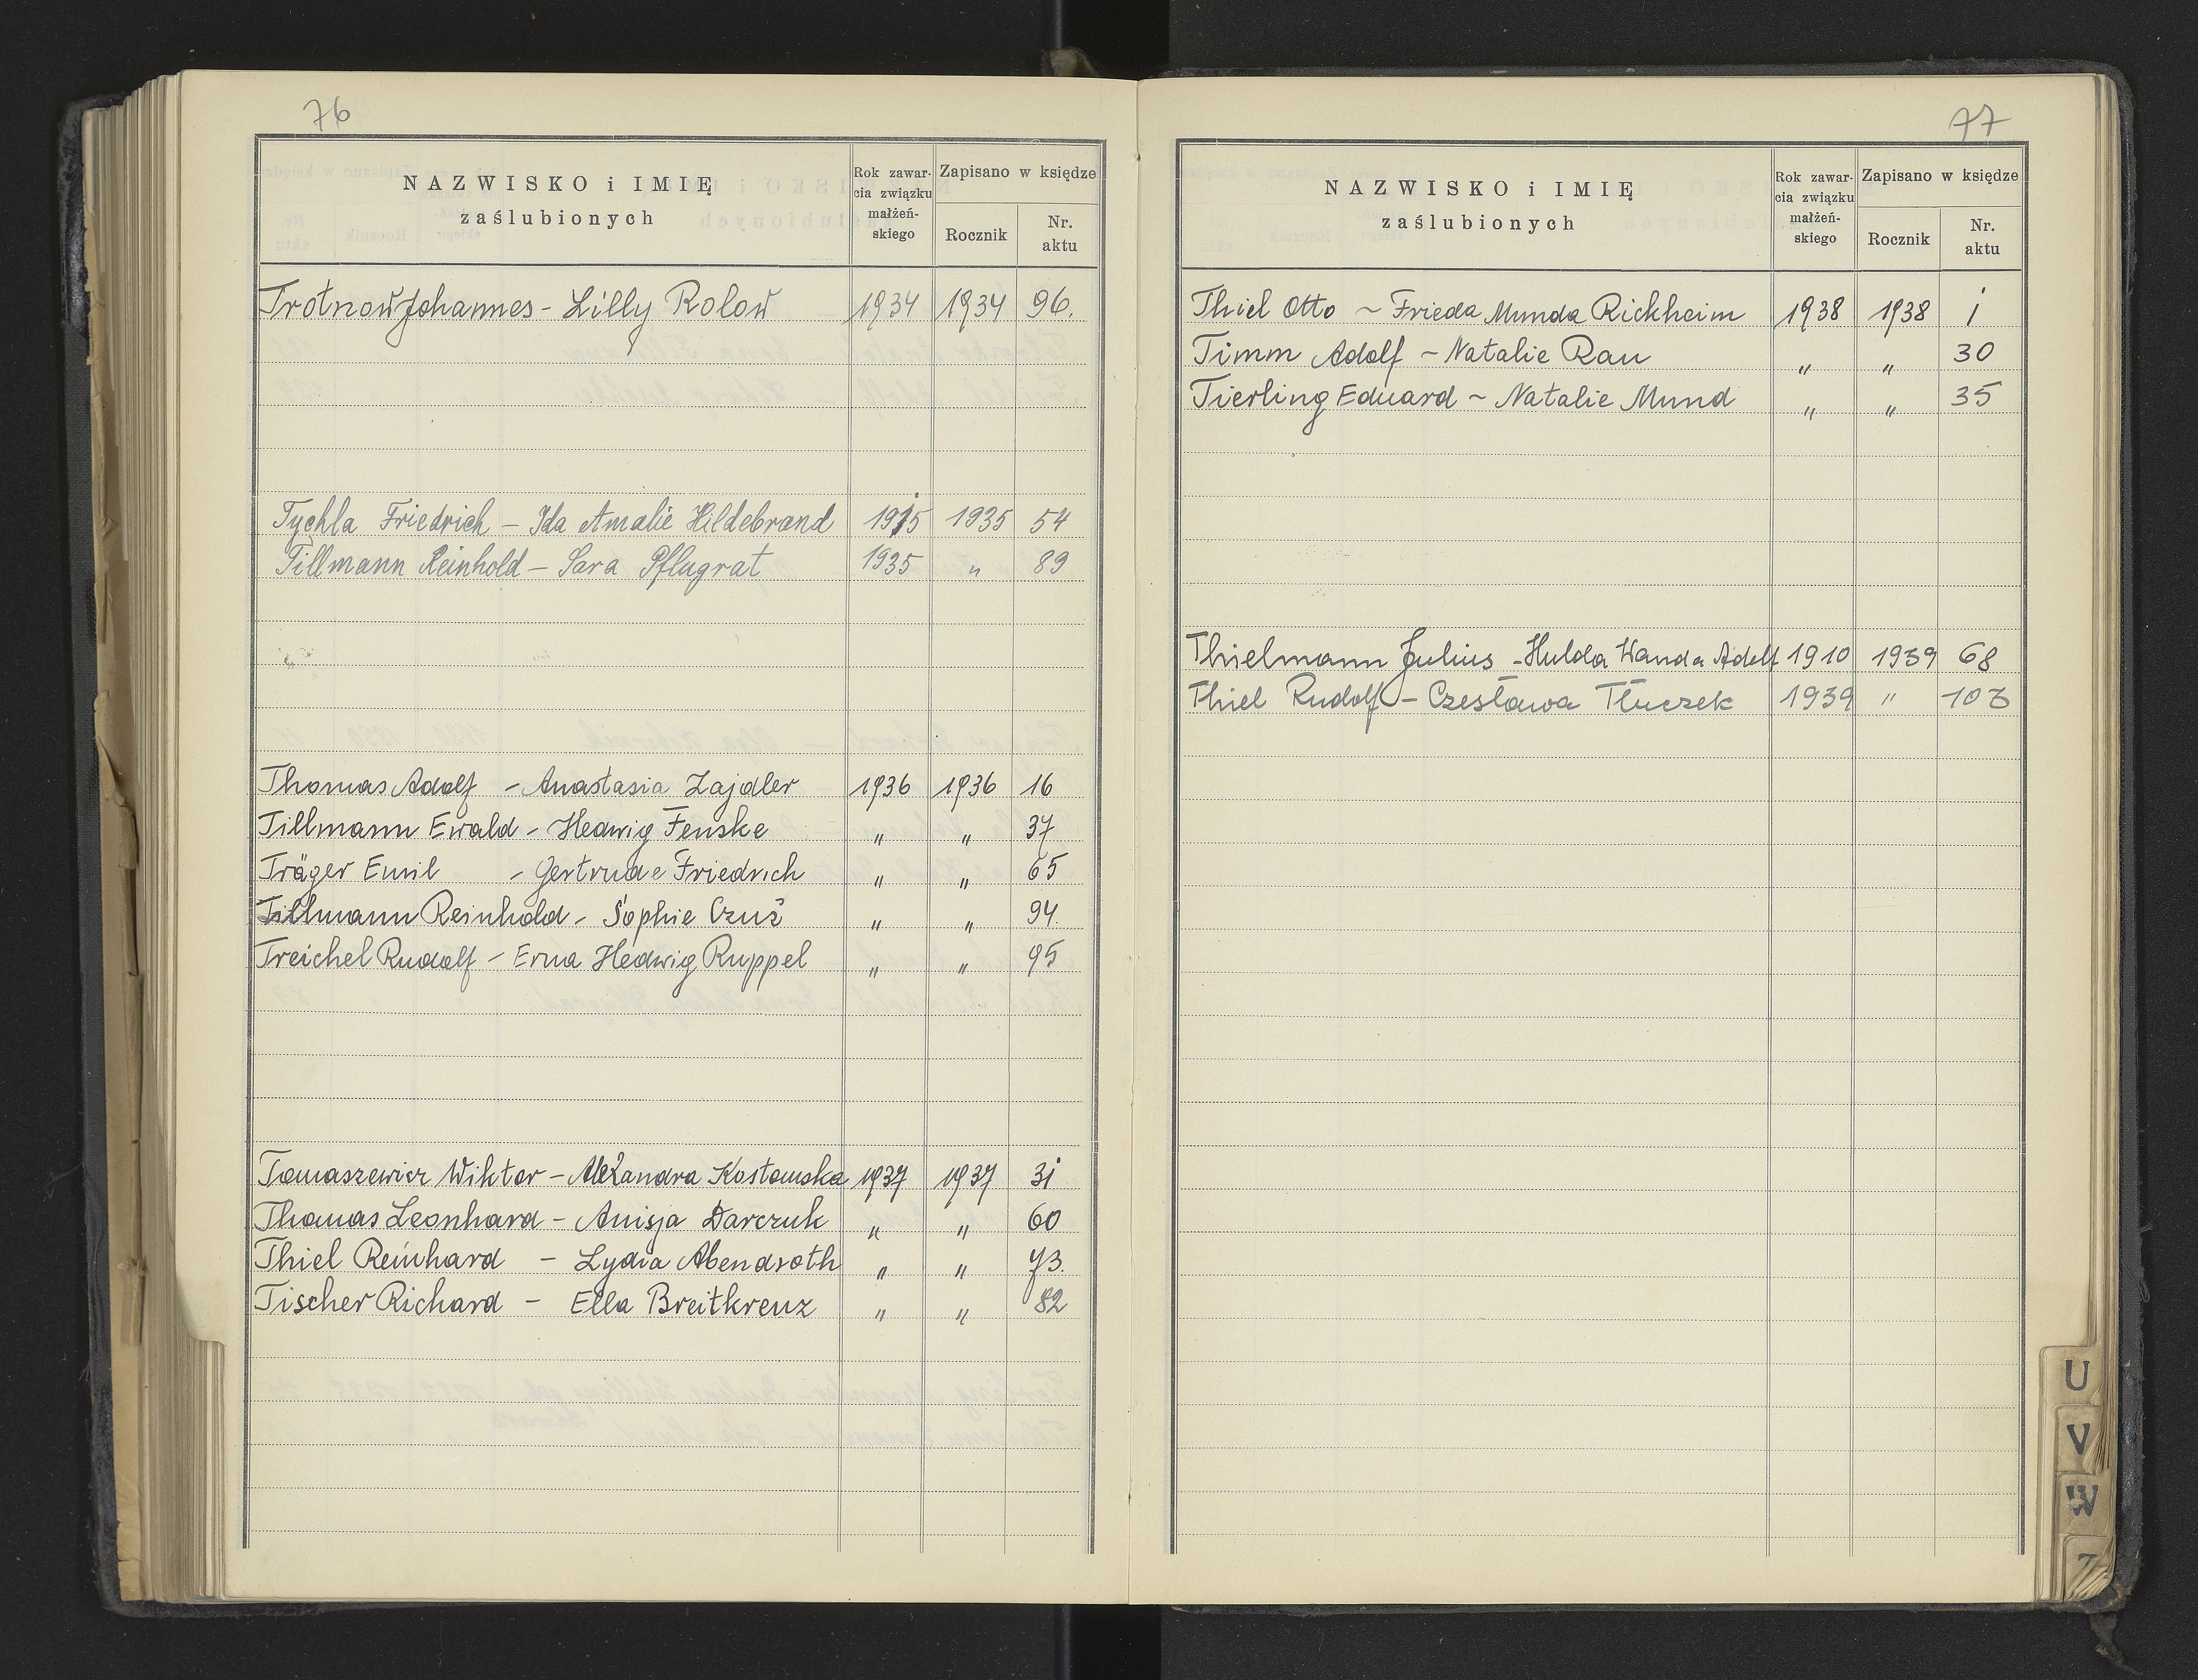 76
NAZWISKO i IMIĘ
zaślubionych
Rok zawar-
cia związku
małżeń-
skiego
Zapisano w księdze
Rocznik
Nr.
aktu
Trotnow Johannes - Lilly Rolow 1934 1934 96.
Tychla Friedrich - Ida Amalie Hildebrand 1915 1935 54
Tillmann Reinhold - Sara Pflugrat 1935 " 89
Thomas Adolf - Anastasia Zajdler 1936 1936 16
Tillmann Ewald - Hedwig Fenske " " 37
Träger Emil - Gertrude Friedrich " " 65
Tillmann Reinhold - Sophie Czuś " " 94.
Treichel Rudolf - Erna Hedwig Ruppel " " 95
Tomaszewicz Wiktor - Alexandra Kostomska 1937 1937 31
Thomas Leonhard - Anisja Darczuk " " 60
Thiel Reinhard - Lydia Abendroth " " 73.
Tischer Richard - Ella Breitkreuz " " 82
77
NAZWISKO i IMIĘ
zaślubionych
Rok zawar-
cia związku
małżeń-
skiego
Zapisano w księdze
Rocznik
Nr.
aktu
Thiel Otto ~ Frieda Munda Rickheim 1938 1938 1
Timm Adolf ~ Natalie Rau " " 30
Tierling Eduard ~ Natalie Mund " " 35
Thielmann Julius - Hulda Wanda Adolf 1910 1939 68
Thiel Rudolf - Czesława Tłuczek 1939 " 103
U
V
W
Z